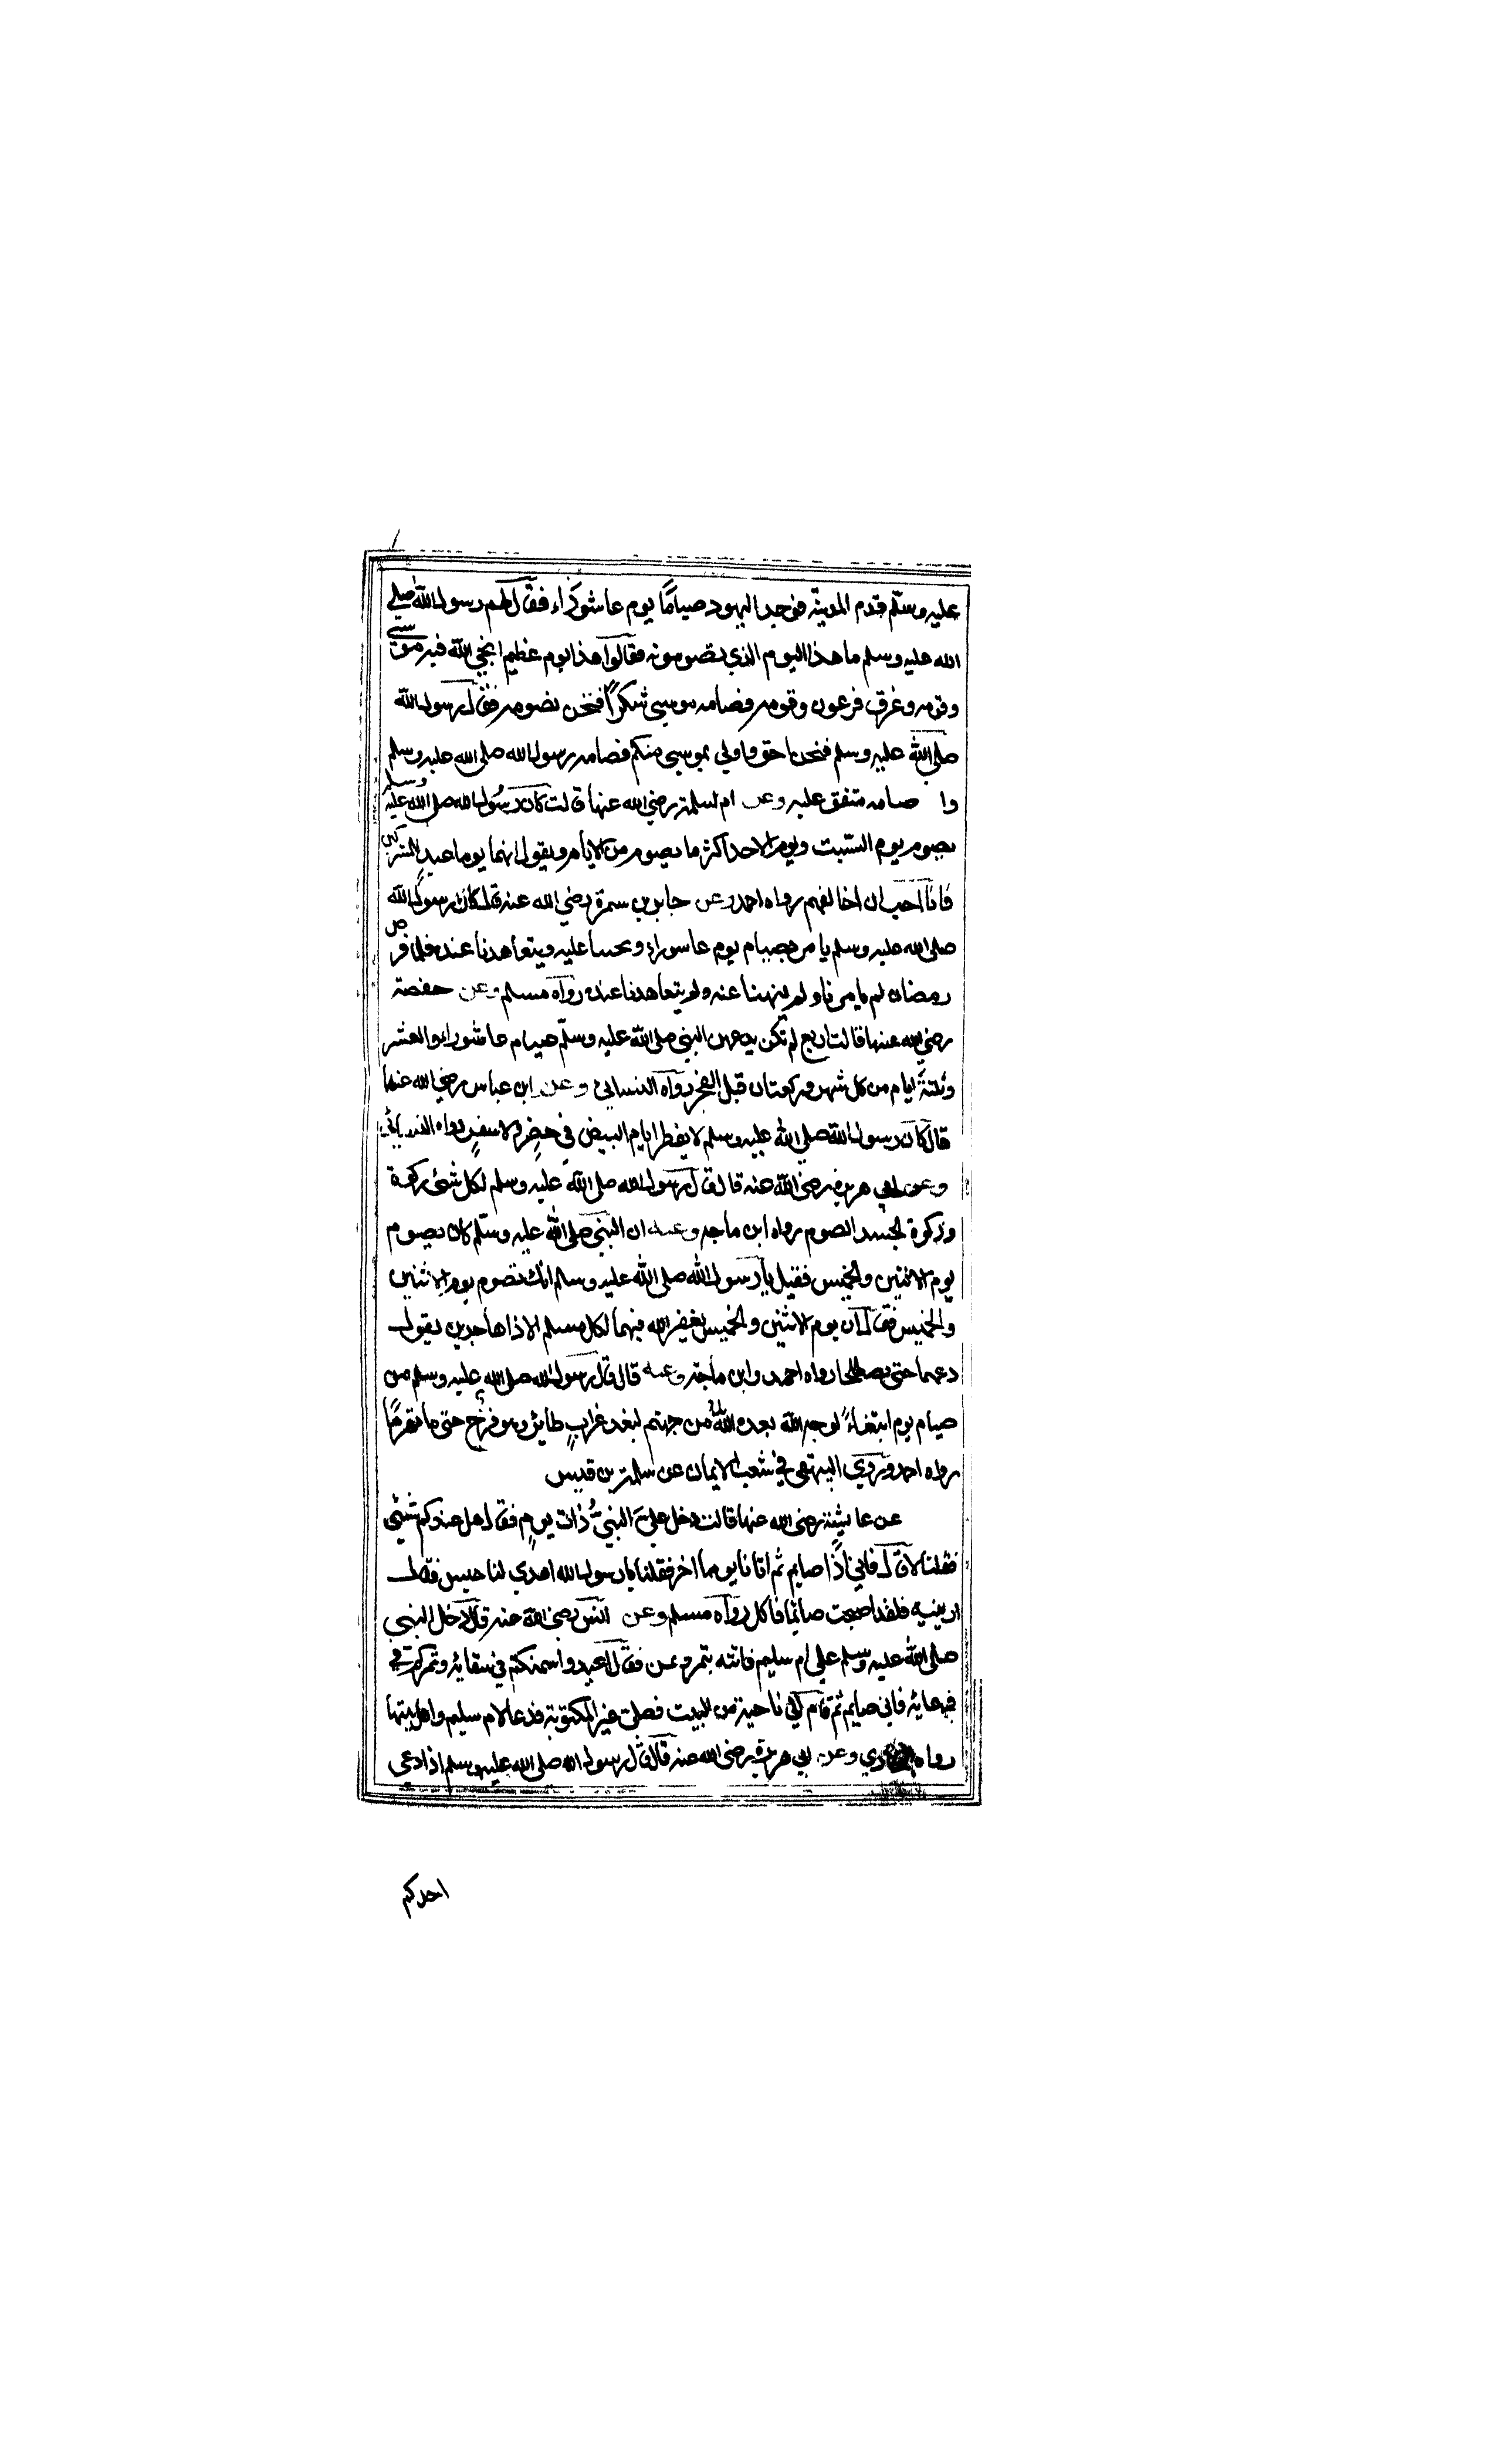 عليه وسلّم قدم المدينة فوجد اليهود صياماً يوم عاشوراء فقال لهم رسول الله صلى
الله عليه وسلم ما هذا اليوم الذي تصومونه فقالوا هذا يوم عظيم انجي الله فيه موسى
وقومه وغرق فرعون وقومه فصامه موسي شكراً فنحن نصومه فقال رسول الله
صلى الله عليه وسلم فنحن احق واولي بموسي منكم فصامه رسول الله صلى الله عليه وسلم
وا صامه متفق عليه وعن ام سلمة رضي الله عنها قالت كان رسول الله صلى الله عليه وسلم
يصوم يوم السّبت ويوم الاحد اكثر ما يصوم من الايام ويقول انهما يوما عيد للمشركين
فانا احب ان اخالفهم رواه احمد وعن جابر بن سمرة رضي الله عنه قال كان رسول الله
صلى الله عليه وسلم يامر بصيام يوم عاسوراء ويحسا عليه ويتعاهدنا عنده فلما فرض
رمضان لم يامرنا ولم ينهنا عنه ولم يتعاهدنا عنده رواه مسلم وعن حفصة
رضي الله عنها قالت اربع لم تكن يدعهن النبي صلى الله عليه وسلّم صيام عاشوراء والعشر
وثلثة ايام من كل شهر وركعتان قبل الفجر رواه النسائي وعن ابن عباس رضي الله عنهما
قال كان رسول الله صلى الله عليه وسلم لا يفطر ايام البيض في حضر ولا سفر رواه النسائي
وعن ابي هريرة رضي الله عنه قال قال رسول الله صلى الله عليه وسلم لكل شئ زكوة
وزكوة الجسد الصوم رواه ابن ماجه وعنه ان النبي صلى الله عليه وسلّم كان يصوم
يوم الاثنين والخميس فقيل يا رسول الله صلى الله عليه وسلم انك تصوم يوم الاثنين
والخميس فقال ان يوم الاثنين والخميس يغفر الله فيهما لكل مسلم الا ذا هاجرين يقول
دعهما حتى يصطلحا رواه احمد وابن ماجة وعنه قال قال رسول الله صلى الله عليه وسلم من
صيام يوم ابتغاءً لوجه الله بعده الله من جهنم لبعد غراب طائر وهو فرخ حتى مات هرماً
رواه احمد وروي البيهقي في شعب الايمان عن سلمة بن قيس
عن عايشة رضي الله عنها قالت دخل عليّ النبي ذات يوم فقال هل عندكم شئي
فقلنا لا قال فاني اذا صايم ثم اتانا يوما اخر فقلنا يا رسول الله اهدي لنا حيس فقال
ارينيه فلقد اصبحت صائما فاكل رواه مسلم وعن انس رضي الله عنه قال دخل النبي
صلى الله عليه وسلم علي ام سليم فاتته بتمر وسمن فقال اعيدوا سمنكم في سقائه وتمركم في
في وعائه فاني صايم ثم قام الي ناحية من البيت فصلي غير المكتوبة فدعا لام سليم واهل بيتها
رواه البخاري وعن ابي هريرة رضي الله عنه قال قال رسول الله صلى الله عليه وسلم اذا دعي
احدكم